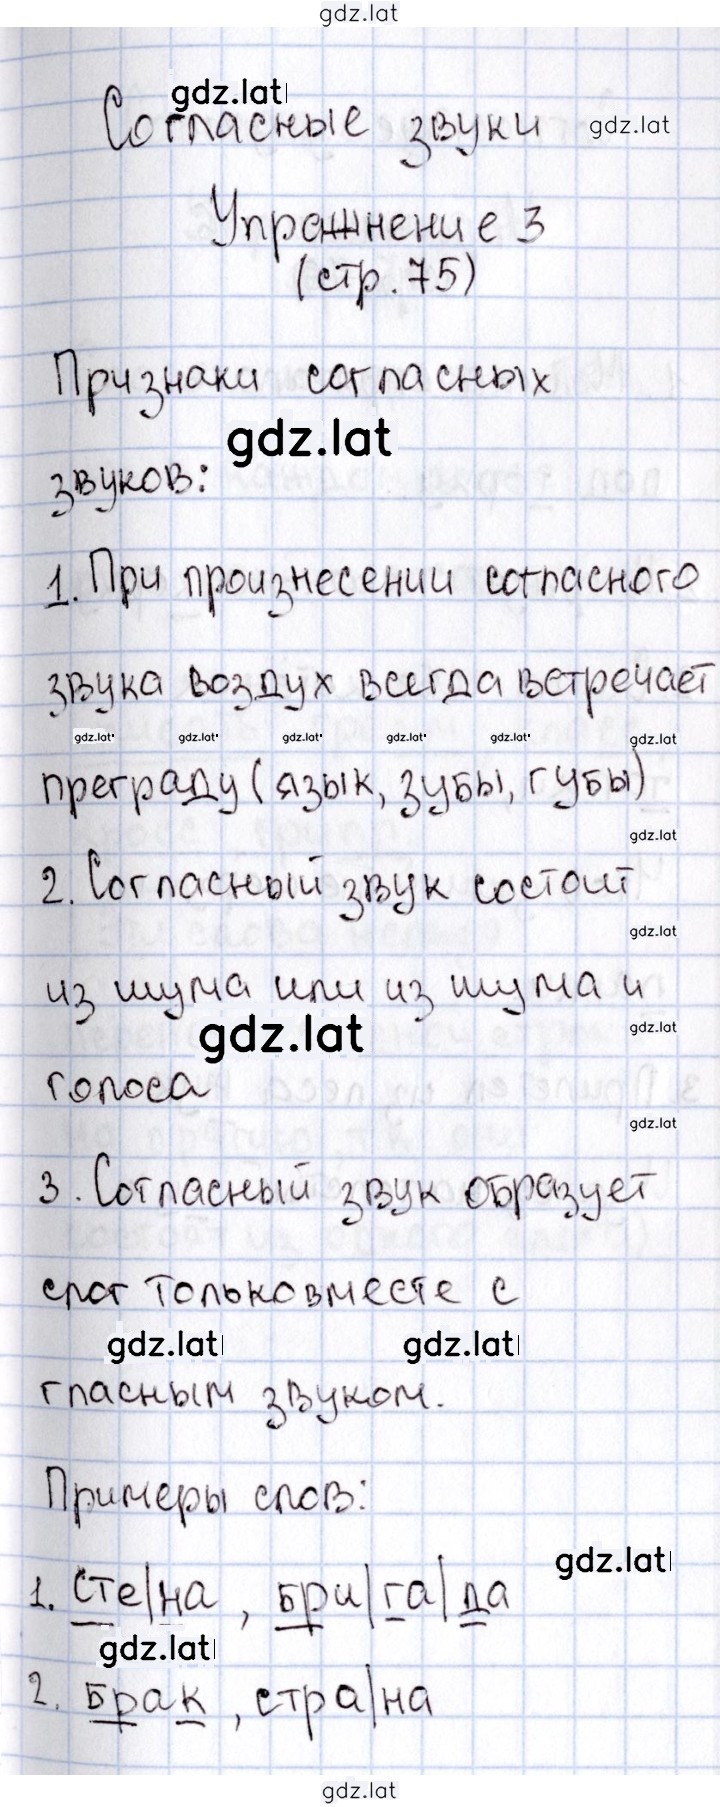 gdz.lat
gdz.lat
Согласные звуки
gdz.lat
Упражнение 3
(стр. 75)
Признаки согласных
gdz.lat
звуков:
1. При произнесении согласного
звука воздух всегда встречает
gdz.lat gdz.lat gdz.lat gdz.lat gdz.lat gdz.lat
преграду (язык, зубы, губы)
gdz.lat
2. Согласный звук состоит
gdz.lat
из шума или из шума и
gdz.lat gdz.lat
голоса
gdz.lat
3. Согласный звук образует
слог только вместе с
gdz.lat gdz.lat
гласным звуком.
Примеры слов:
gdz.lat
1. Сте|на, бри|га|да
gdz.lat
2. Брак, стра|на
gdz.lat